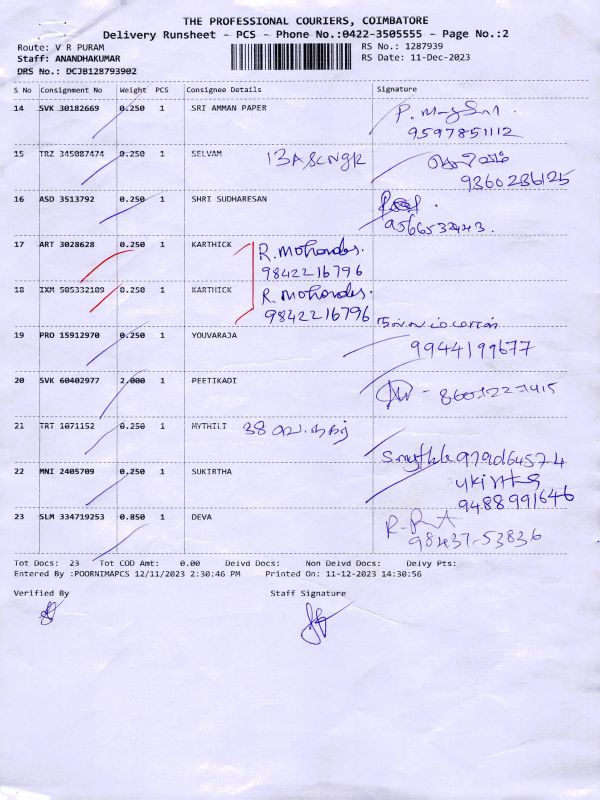 THE PROFESSIONAL COURIERS, COIMBATORE
Delivery Runsheet - PCS - Phone No.:0422-3505555 - Page No.:2
Route: V R PURAM
RS No.: 1287939
Staff: ANANDHAKUMAR
RS Date: 11-Dec-2023
DRS No.: DCJB128793902
S No Consignment No Weight PCS Consignee Details Signature
14 SVK 30182669 0.250 1 SRI AMMAN PAPER
9597851112
15 TRZ 345087474 0.250 1 SELVAM
9360236125
16 ASD 3513792 0.250 1 SHRI SUDHARESAN
9566532443.
17 ART 3028628 0.250 1 KARTHICK R. Mohandas.
9842216796
18 IXM 505332109 0.250 1 KARTHICK R. Mohandas.
9842216796
19 PRO 15912970 0.250 1 YOUVARAJA
9944199677
20 SVK 60402977 2.000 1 PEETIKADI
21 TRT 1071152 0.250 1 MYTHILI 38
9790164574
22 MNI 2405709 0.250 1 SUKIRTHA
9488991646
23 SLM 334719253 0.850 1 DEVA
98437-53836
Tot Docs: 23 Tot COD Amt: 0.00 Delvd Docs: Non Delvd Docs: Delvy Pts:
Entered By :POORNIMAPCS 12/11/2023 2:30:46 PM Printed On: 11-12-2023 14:30:56
Verified By Staff Signature